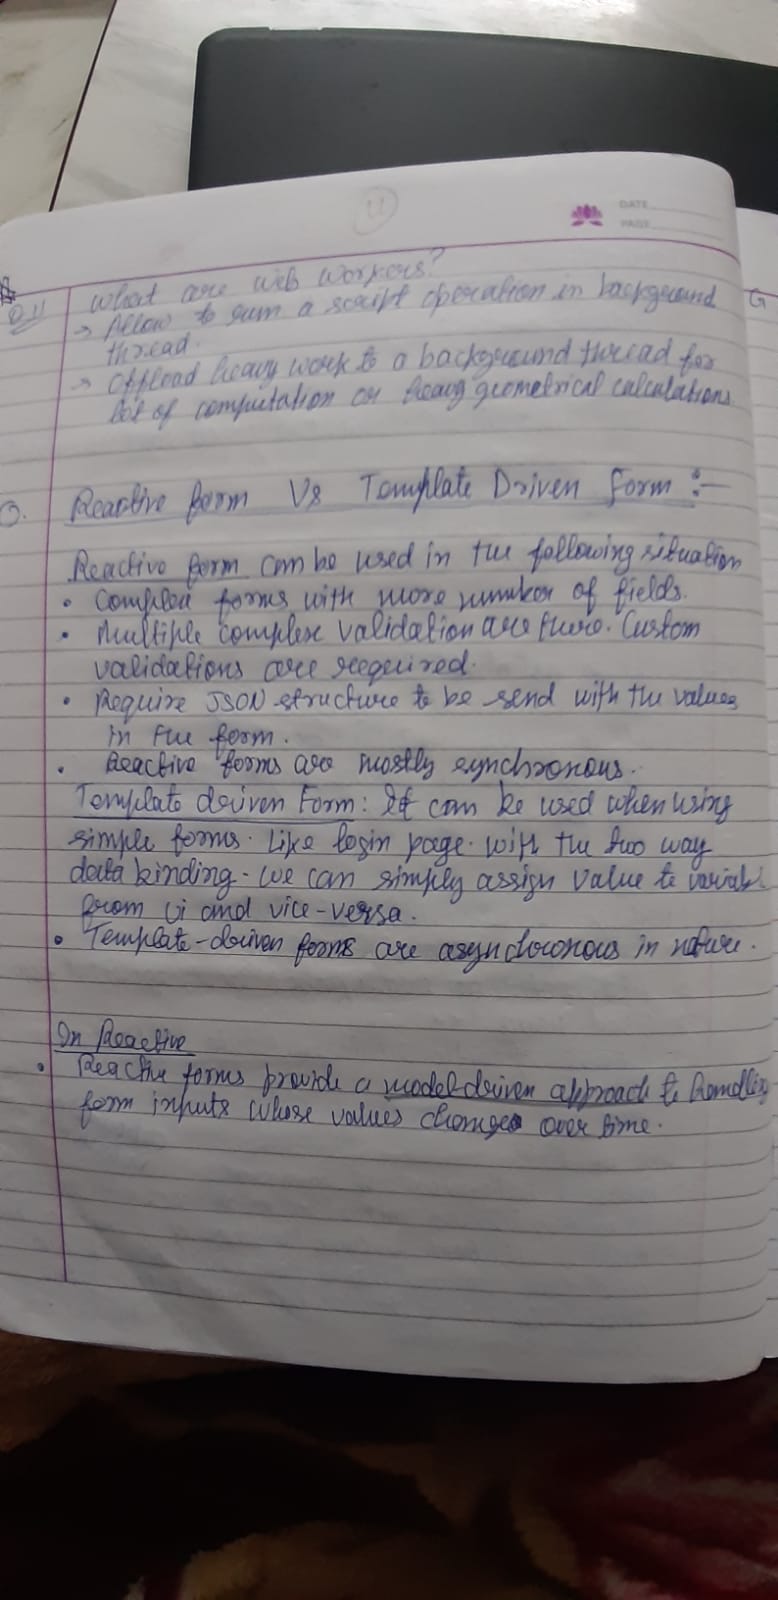 11
DATE
PAGE
Q.11 What are web workers?
→ Allow to run a script operation in background
thread.
→ Offload heavy work to a background thread for
lot of computation or heavy geometrical calculations.
Q. Reactive form Vs Template Driven Form :-
Reactive form can be used in the following situation
• Complex forms with more number of fields.
• Multiple complex validation are there. Custom
validations are required.
• Require JSON structure to be send with the values
in the form.
• Reactive forms are mostly synchronous.
Template driven Form: It can be used when using
simple forms. Like login page. with the two way
data binding. we can simply assign value to variable
from ui and vice-versa.
• Template-driven forms are asynchronous in nature.
In Reactive
• Reactive forms provide a model-driven approach to handling
form inputs whose values change over time.